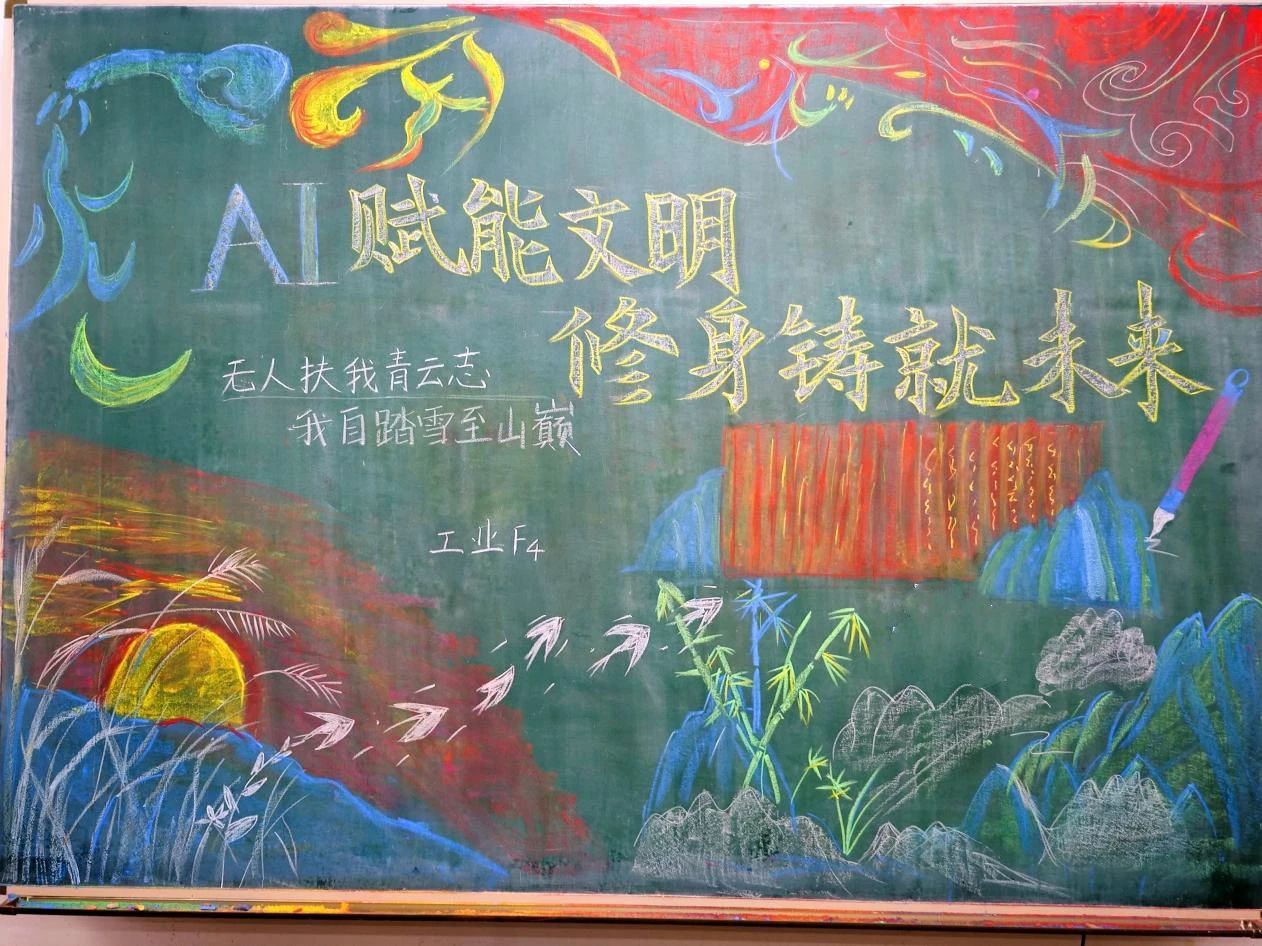 AI赋能文明
修身铸就未来
无人扶我青云志
我自踏雪至山巅
工业F4